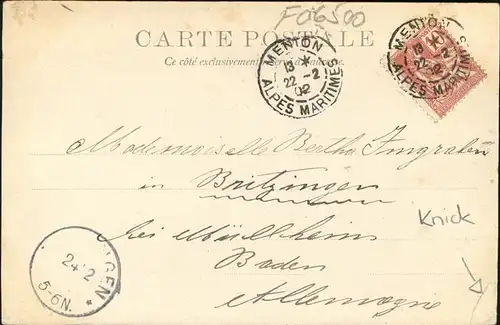 F06500
CARTE POSTALE
Ce côté exclusivement
MENTON
13 *
22 -2
02
ALPES MARITIMES
MENTON
13 *
22 -2
02
ALPES MARITIMES
Mademoiselle Bertha Imgraben
in Britzingen
bei Müllheim
Baden
Allemagne
Knick
24 2
5-6N. *